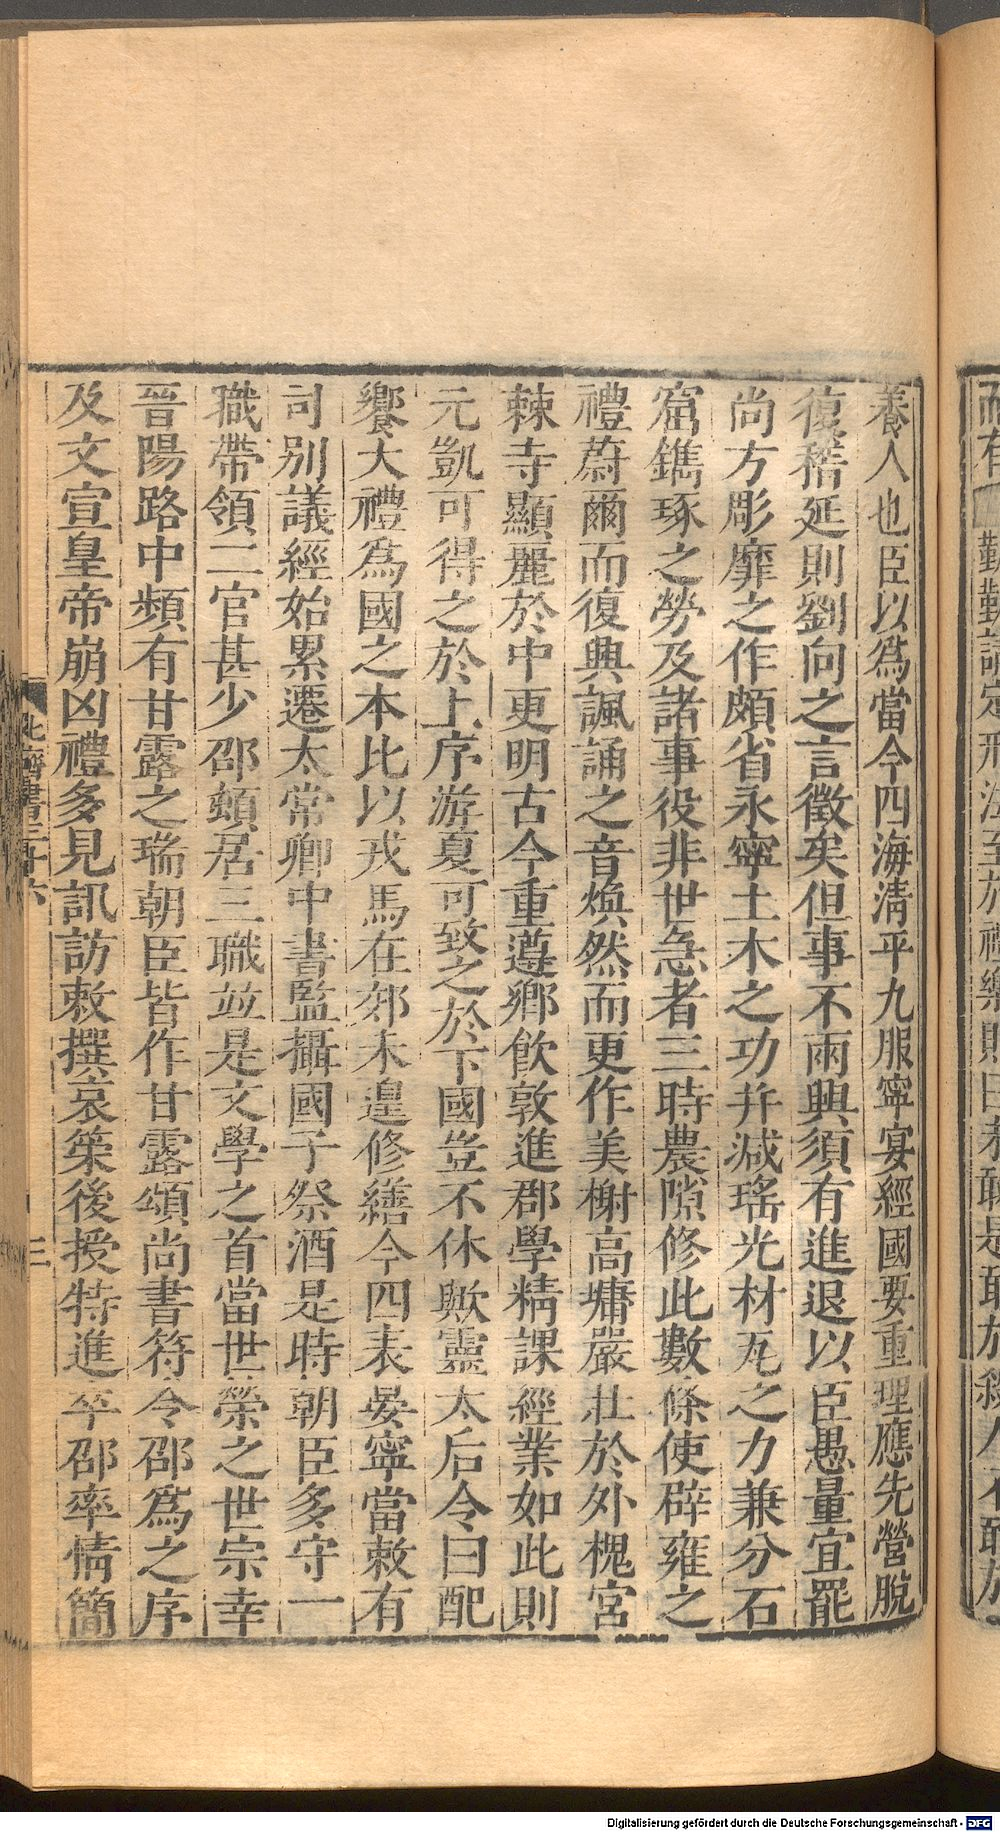 養人也臣以爲當今四海淸平九服寧宴經國要重理應先營脫
復稽延則劉向之言徵矣但事不兩興須有進退以臣愚量宜罷
尚方彫靡之作頗省永寧土木之功幷減瑤光材瓦之力兼分石
窟鐫琢之勞及諸事役非世急者三時農隙修此數條使辟雍之
禮蔚爾而復興諷誦之音煥然而更作美榭高墉嚴壯於外槐宮
棘寺顯麗於中更明古今重遵鄉飮敦進郡學精課經業如此則
元凱可得之於上序游夏可致之於下國豈不休歟靈太后令曰配
饗大禮爲國之本比以戎馬在郊未遑修繕今四表晏寧當敕有
司別議經始累遷太常卿中書監攝國子祭酒是時朝臣多守一
職帶領二官甚少邵頓居三職竝是文學之首當世榮之世宗幸
晉陽路中頻有甘露之瑞朝臣皆作甘露頌尚書符令邵爲之序
及文宣皇帝崩凶禮多見訊訪敕撰哀策後授特進卒邵率情簡
北齊書三十六
三
Digitalisierung gefördert durch die Deutsche Forschungsgemeinschaft - DFG